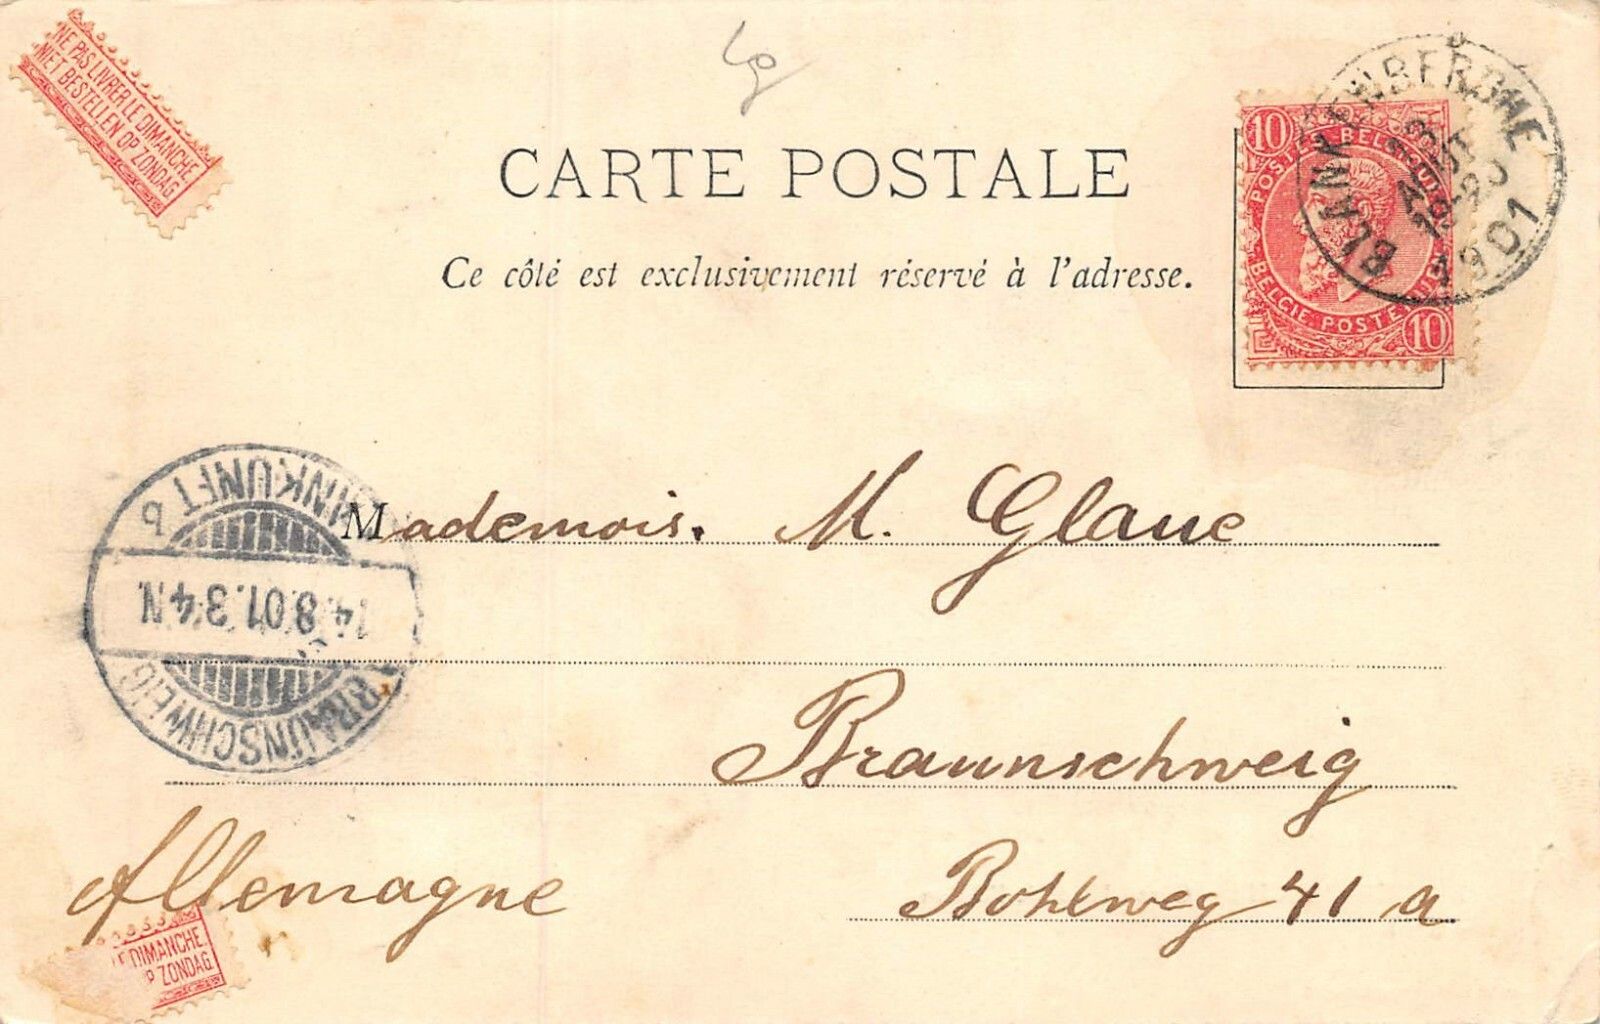 NE PAS LIVRER LE DIMANCHE
NIET BESTELLEN OP ZONDAG
CARTE POSTALE
Ce côté est exclusivement réservé à l'adresse.
10
POSTES BELGIQUE
BELGIE POSTERIJEN
10
BLANKENBERGHE
13 AOUT
1901
Mademois. M. Glaue
ANKUNFT
14.8.01.3-4N.
BRAUNSCHWEIG
Braunschweig
Allemagne
Bohlweg 41 a
LE DIMANCHE
OP ZONDAG